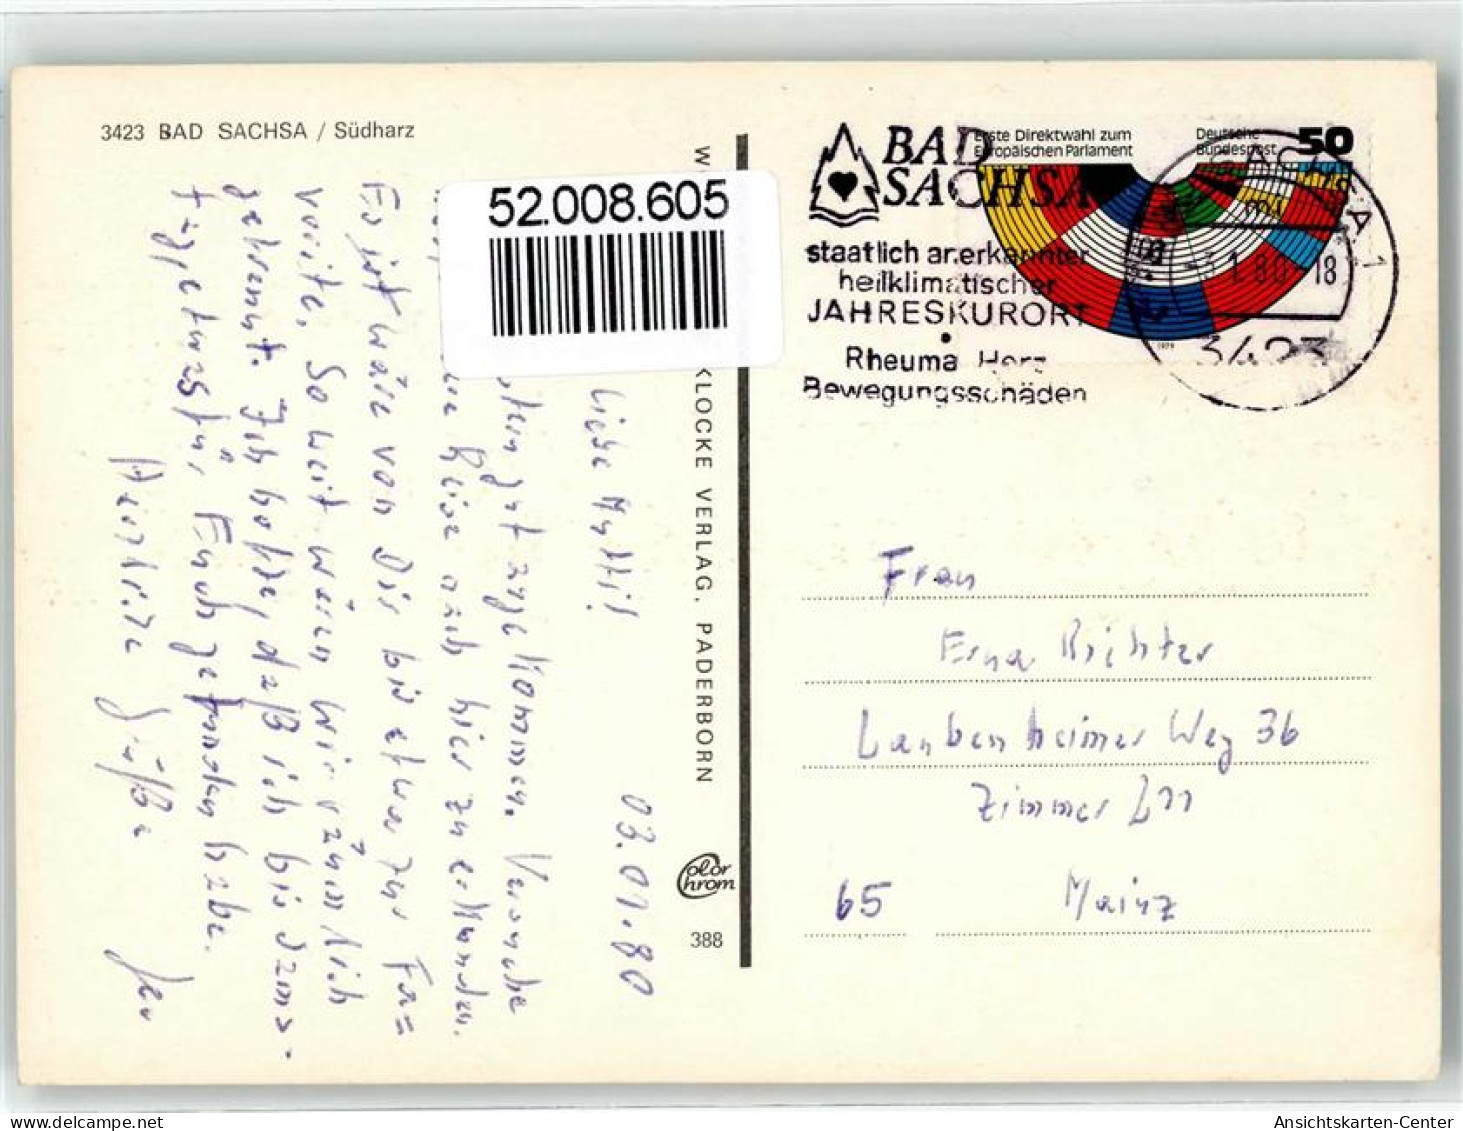 3423 BAD SACHSA / Südharz
52.008.605
KLOCKE VERLAG, PADERBORN
Color Chrom
388
BAD SACHSA
staatlich anerkannter
heilklimatischer
JAHRESKURORT
Rheuma Herz
Bewegungsschäden
Erste Direktwahl zum
Europäischen Parlament
Deutsche
Bundespost
50
1979
SACHSA 1
-3.1.80-18
3423
03.01.80
Liebe Mutti!
gut angekommen. Versuche
Reise auch hier zu erkunden.
Es ist wäre von Dir bis etwa zur Fa=
vorite. So weit wären wir räumlich
getrennt. Ich hoffe, daß ich bis dann
für Euch gefunden habe.
Herzliche Grüße
Frau
Erna Richter
Laubenheimer Weg 36
Zimmer 211
65 Mainz
Ansichtskarten-Center